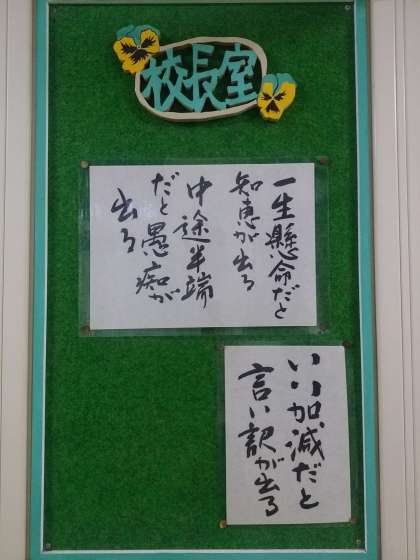 校長室
一生懸命だと
知恵が出る
中途半端
だと愚痴が
出る
いい加減だと
言い訳が出る